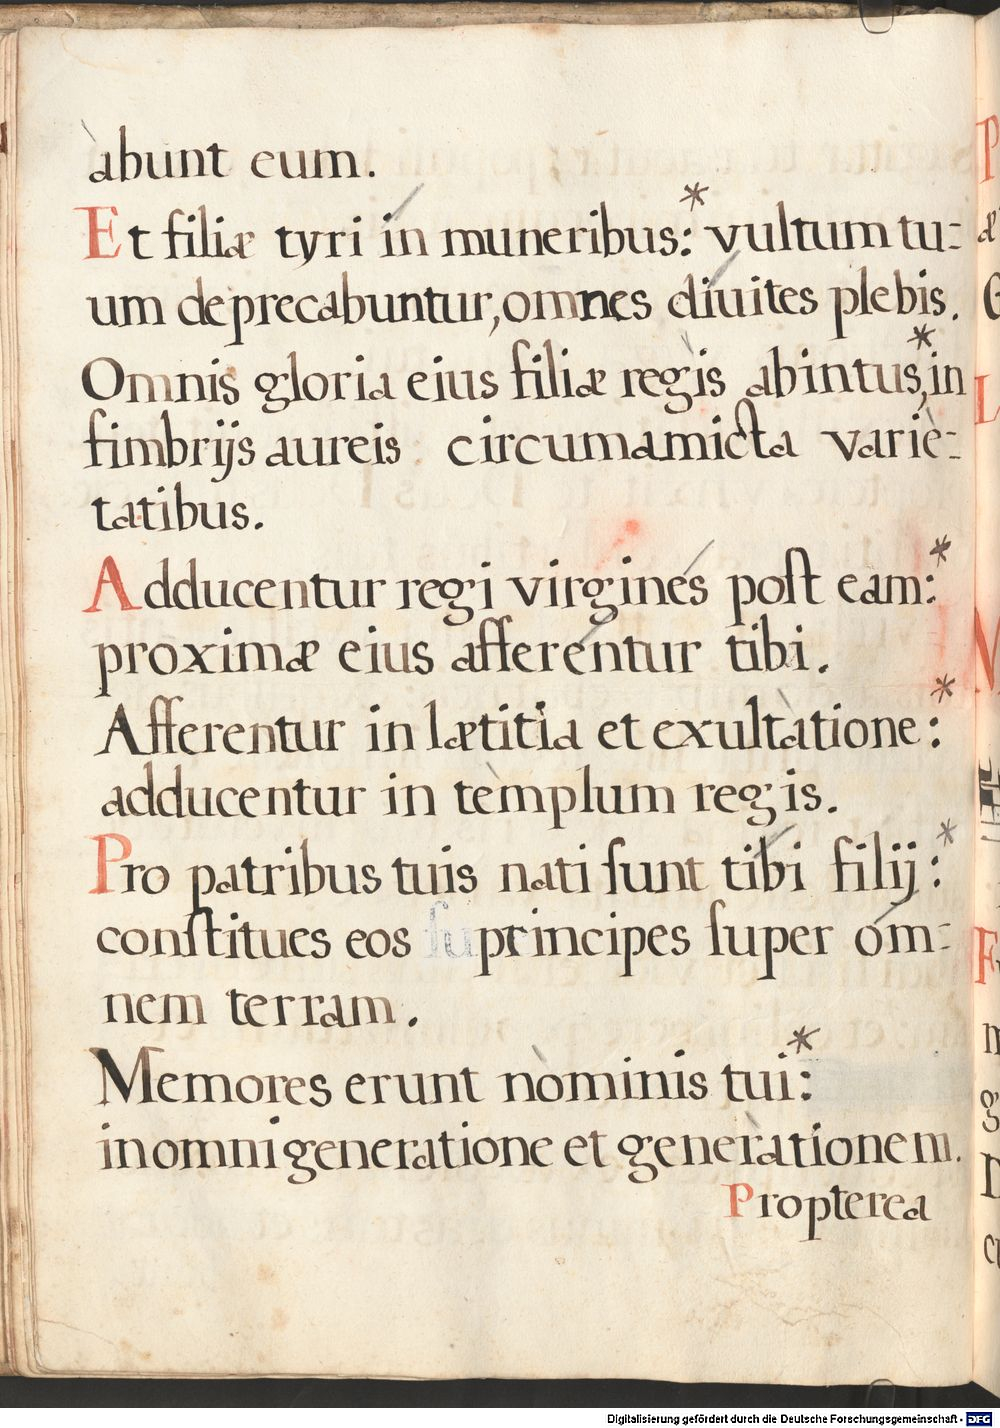 abunt eum.
Et filiæ tyri in muneribus:* vultum tu-
um deprecabuntur, omnes diuites plebis.
Omnis gloria eius filiæ regis abintus,* in
fimbrijs aureis circumamicta varie-
tatibus.
Adducentur regi virgines poſt eam:*
proximæ eius afferentur tibi.
Afferentur in lætitia et exultatione:*
adducentur in templum regis.
Pro patribus tuis nati ſunt tibi filij:*
conſtitues eos principes ſuper om-
nem terram.
Memores erunt nominis tui:*
in omni generatione et generationem.
Propterea
Digitalisierung gefördert durch die Deutsche Forschungsgemeinschaft - DFG